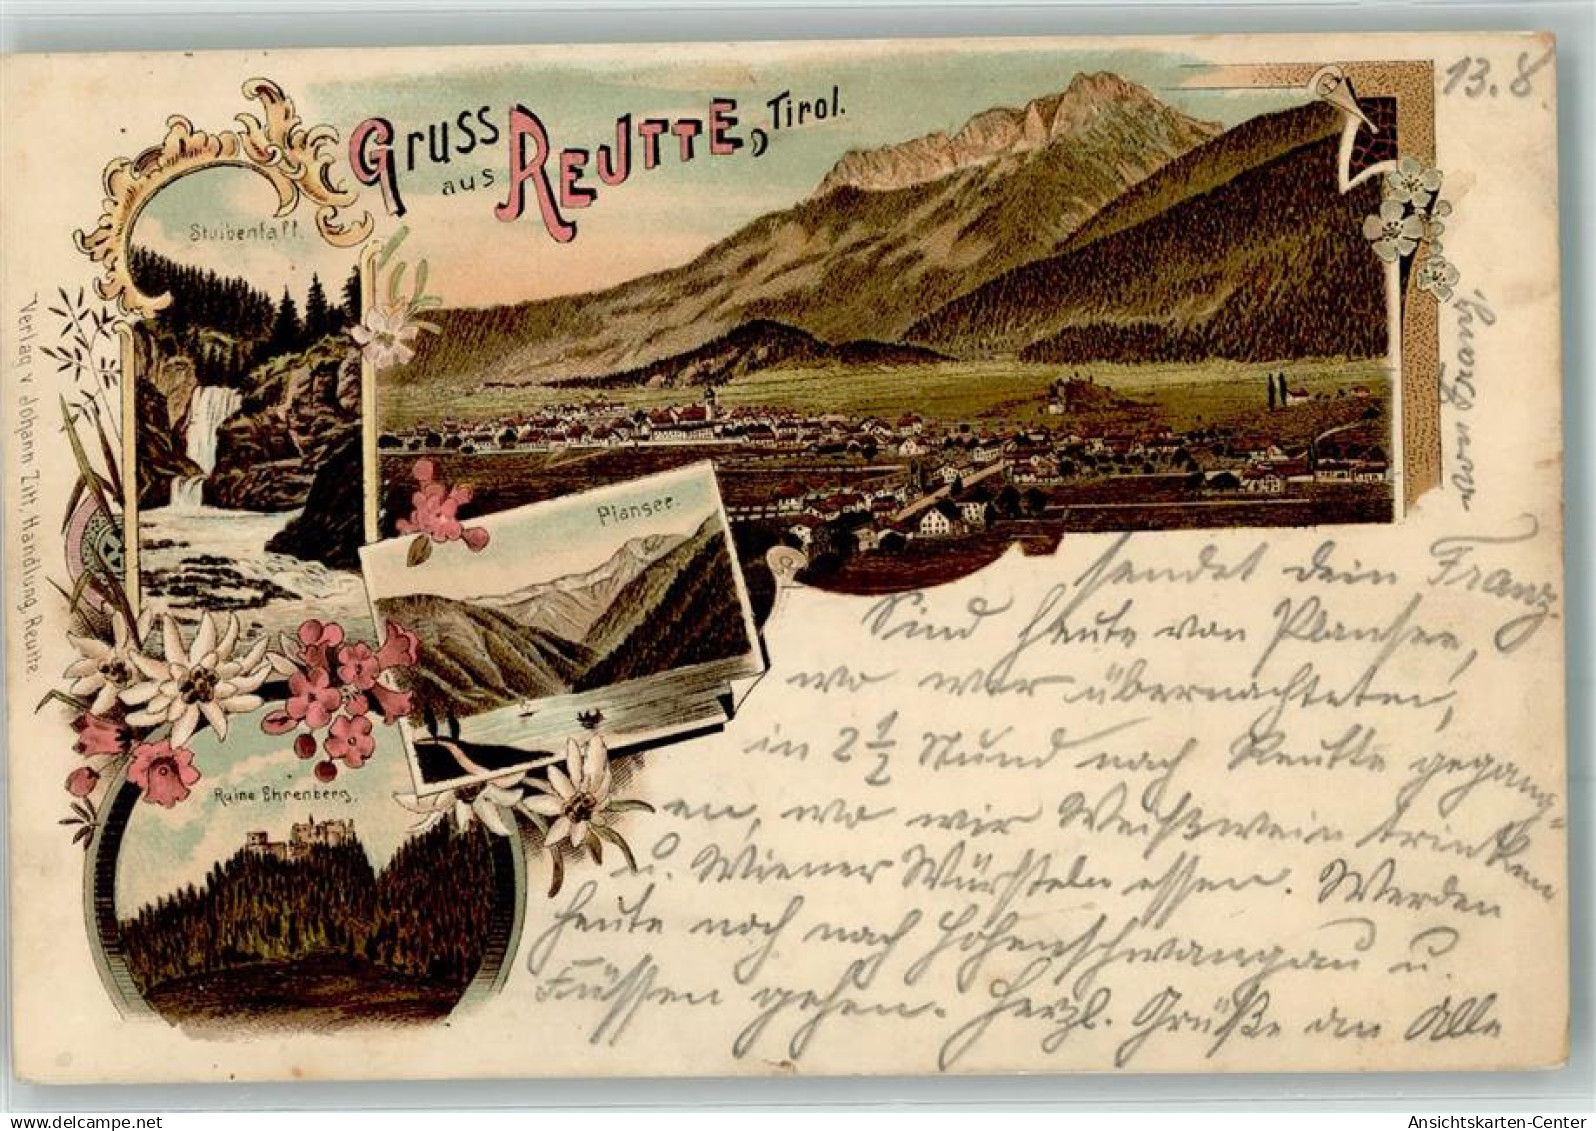 Gruss
aus
REUTTE, Tirol.
13.8
Stuibenfall.
Plansee.
Ruine Ehrenberg.
Verlag v. Johann Zitt, Handlung, Reutte.
sendet dein Franz.
Sind heute von Plansee,
wo wir übernachteten,
in 2 1/2 Stund nach Reutte gegang-
en, wo wir Weißwein trinken
u. Wiener Würsteln essen. Werden
heute noch nach Hohenschwangau u.
Füssen gehen. Herzl. Grüße an Alle
AnsichtsKarten-Center